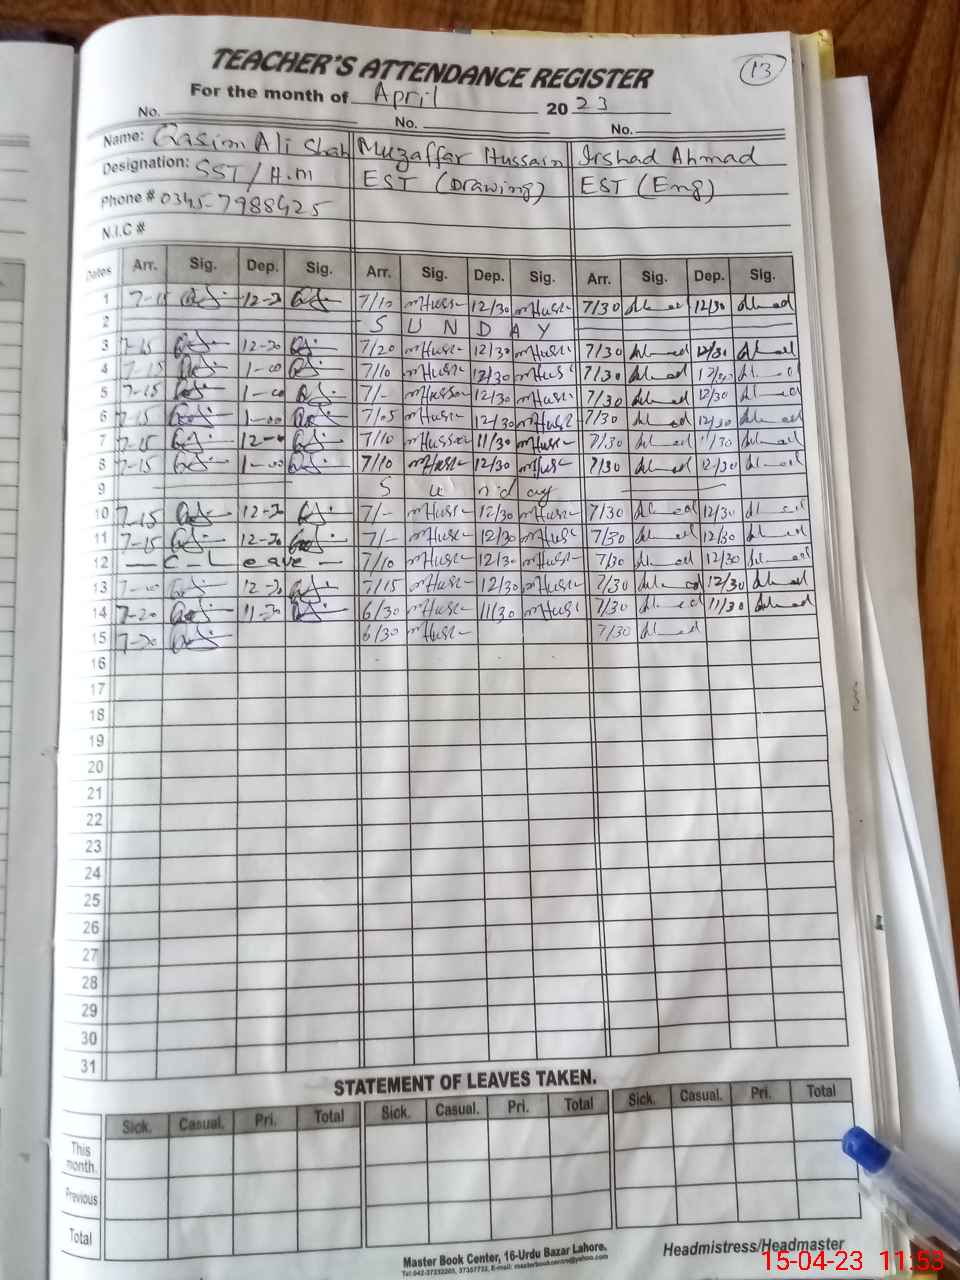 13
TEACHER'S ATTENDANCE REGISTER
For the month of April 2023
No. No. No.
Name: Qasim Ali Shah Muzaffar Hussain Irshad Ahmad
Designation: SST/H.m EST (Drawing) EST (Eng)
Phone # 0345-7988425
N.I.C #
Dates Arr. Sig. Dep. Sig. Arr. Sig. Dep. Sig. Arr. Sig. Dep. Sig.
1 7-15 12-30 7/10 mHuss 12/30 mHuss 7/30 Ahmad 12/30 Ahmad
2 SUNDAY
3 7-15 12-30 7/20 mHuss 12/30 mHuss 7/30 Ahmad 12/30 Ahmad
4 7-15 1-00 7/10 mHuss 12/30 mHuss 7/30 Ahmad 12/30 Ahmad
5 7-15 1-00 7/- mHuss 12/30 mHuss 7/30 Ahmad 12/30 Ahmad
6 7-15 1-00 7/05 mHuss 12/30 mHuss 7/30 Ahmad 12/30 Ahmad
7 7-15 7/10 mHuss 11/30 mHuss 7/30 Ahmad 11/30 Ahmad
8 7-15 1-00 7/10 mHuss 12/30 mHuss 7/30 Ahmad 12/30 Ahmad
9 Sunday
10 7-15 12-30 7/- mHuss 12/30 mHuss 7/30 Ahmad 12/30 Ahmad
11 7-15 12-30 7/- mHuss 12/30 mHuss 7/30 Ahmad 12/30 Ahmad
12 — C - Leave — 7/10 mHuss 12/30 mHuss 7/30 Ahmad 12/30 Ahmad
13 7-00 12-30 7/15 mHuss 12/30 mHuss 7/30 Ahmad 12/30 Ahmad
14 7-20 11-30 6/30 mHuss 11/30 mHuss 7/30 Ahmad 11/30 Ahmad
15 7-20 6/30 mHuss 7/30 Ahmad
16
17
18
19
20
21
22
23
24
25
26
27
28
29
30
31
STATEMENT OF LEAVES TAKEN.
Sick. Casual. Pri. Total Sick. Casual. Pri. Total Sick. Casual. Pri. Total
This month.
Previous
Total
Master Book Center, 16-Urdu Bazar Lahore.
Headmistress/Headmaster
15-04-23 11:53